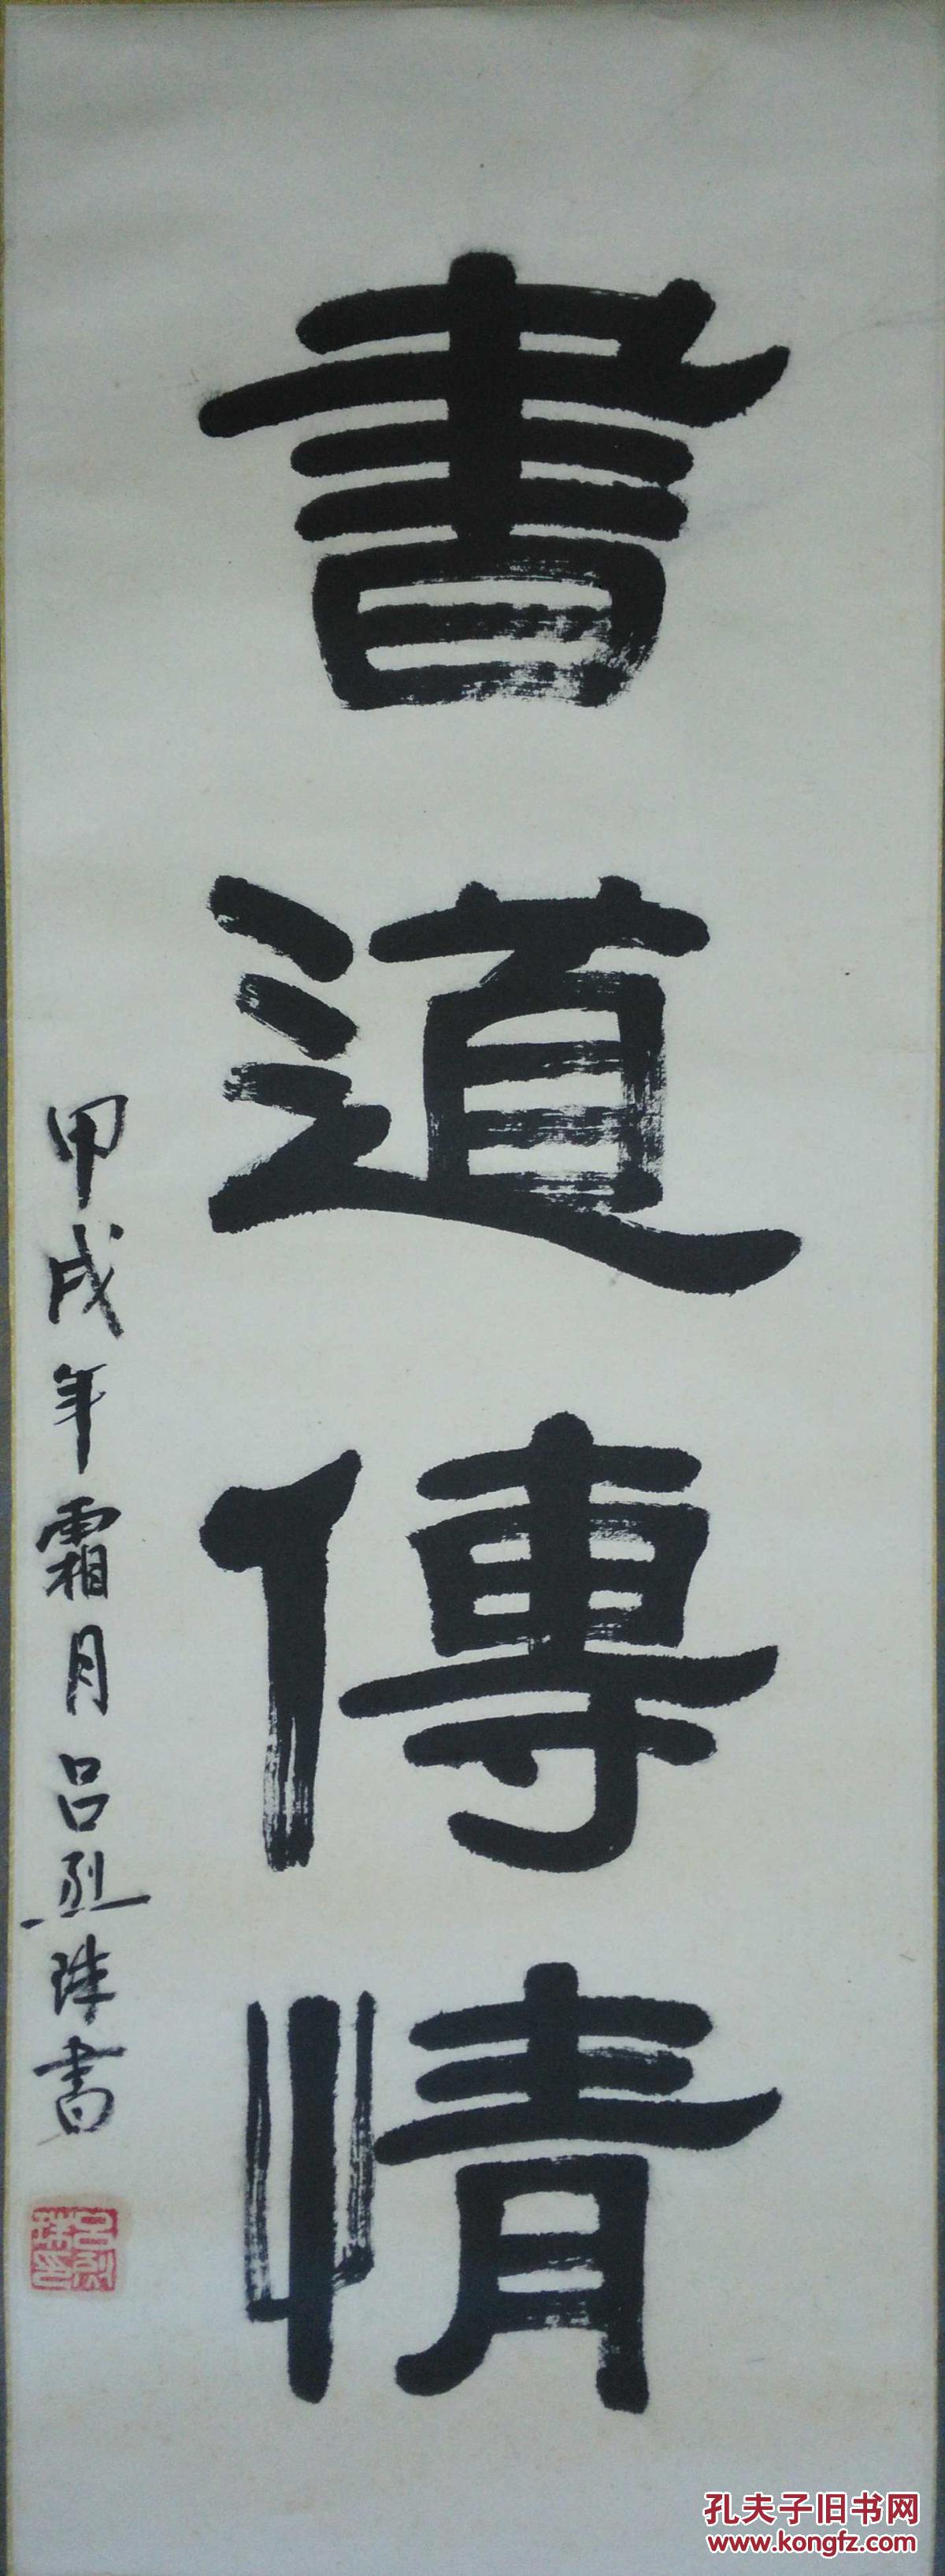 書道傳情
甲戌年霜月吕烈珠書
吕烈珠印
孔夫子旧书网
www.kongfz.com